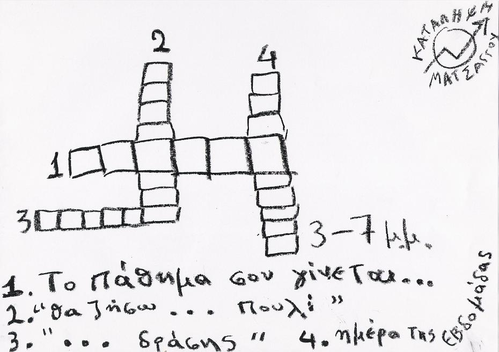 ΚΑΤΑΛΗΨΗ
ΜΑΤΣΑΓΓΟΥ
2
4
1
3
3-7 μ.μ.
1. Το πάθημα σου γίνεται...
2. "θα ζήσω ... πουλί"
3. "... δράσης" 4. ημέρα της εβδομάδας